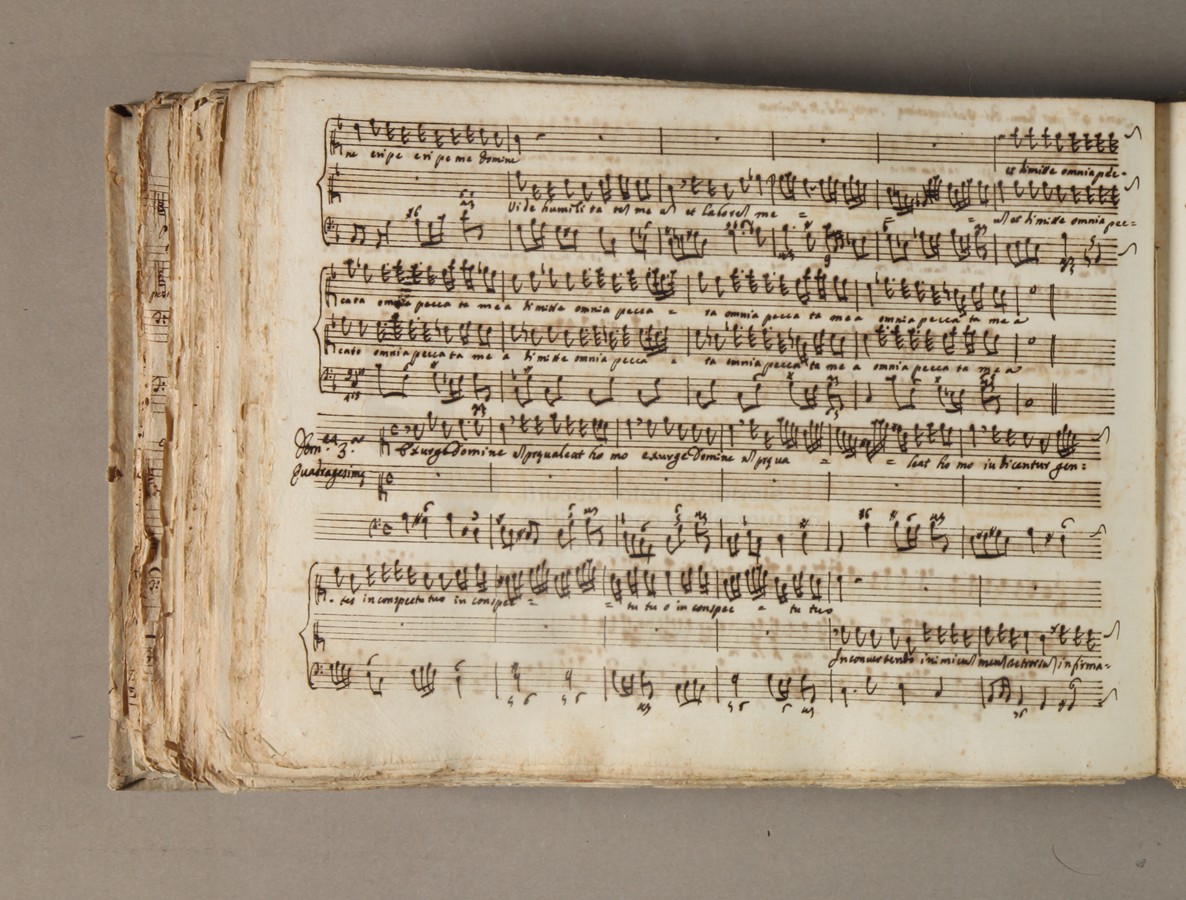 ne eripe eripe me Domine
et dimitte omnia pec-
Vide humilitatem mea et laborem me = = = et dimitte omnia pec=
cata omnia peccata mea dimitte omnia pecca = ta omnia peccata mea omnia peccata mea
cata omnia peccata mea dimitte omnia pecca = ta omnia peccata mea omnia peccata mea
Dom.ca 3.a
Quadragesime
Exurge Domine non prevaleat homo exurge Domine non preva = = leat homo iudicentur gen=
tes in conspectu tuo in conspec = = tu tuo in conspec = tu tuo
In convertendo inimicum meum retrorsum infirma=